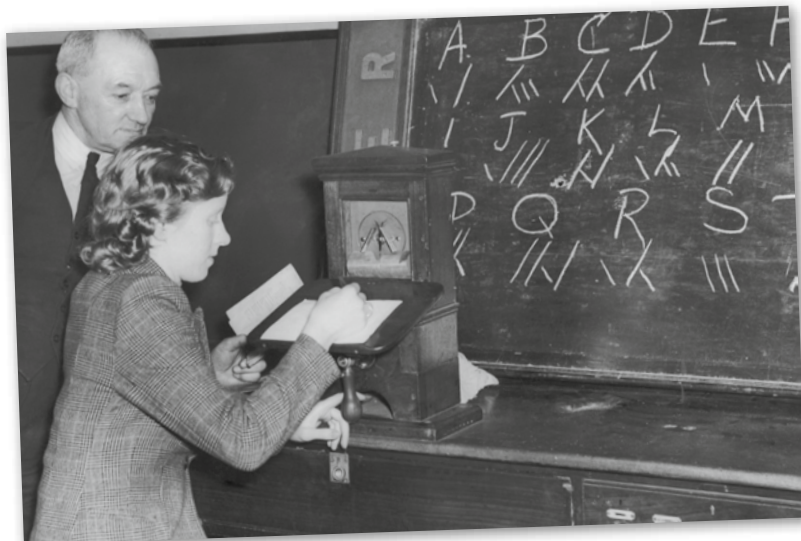 A B C D E F
I J K L M
P Q R S
R